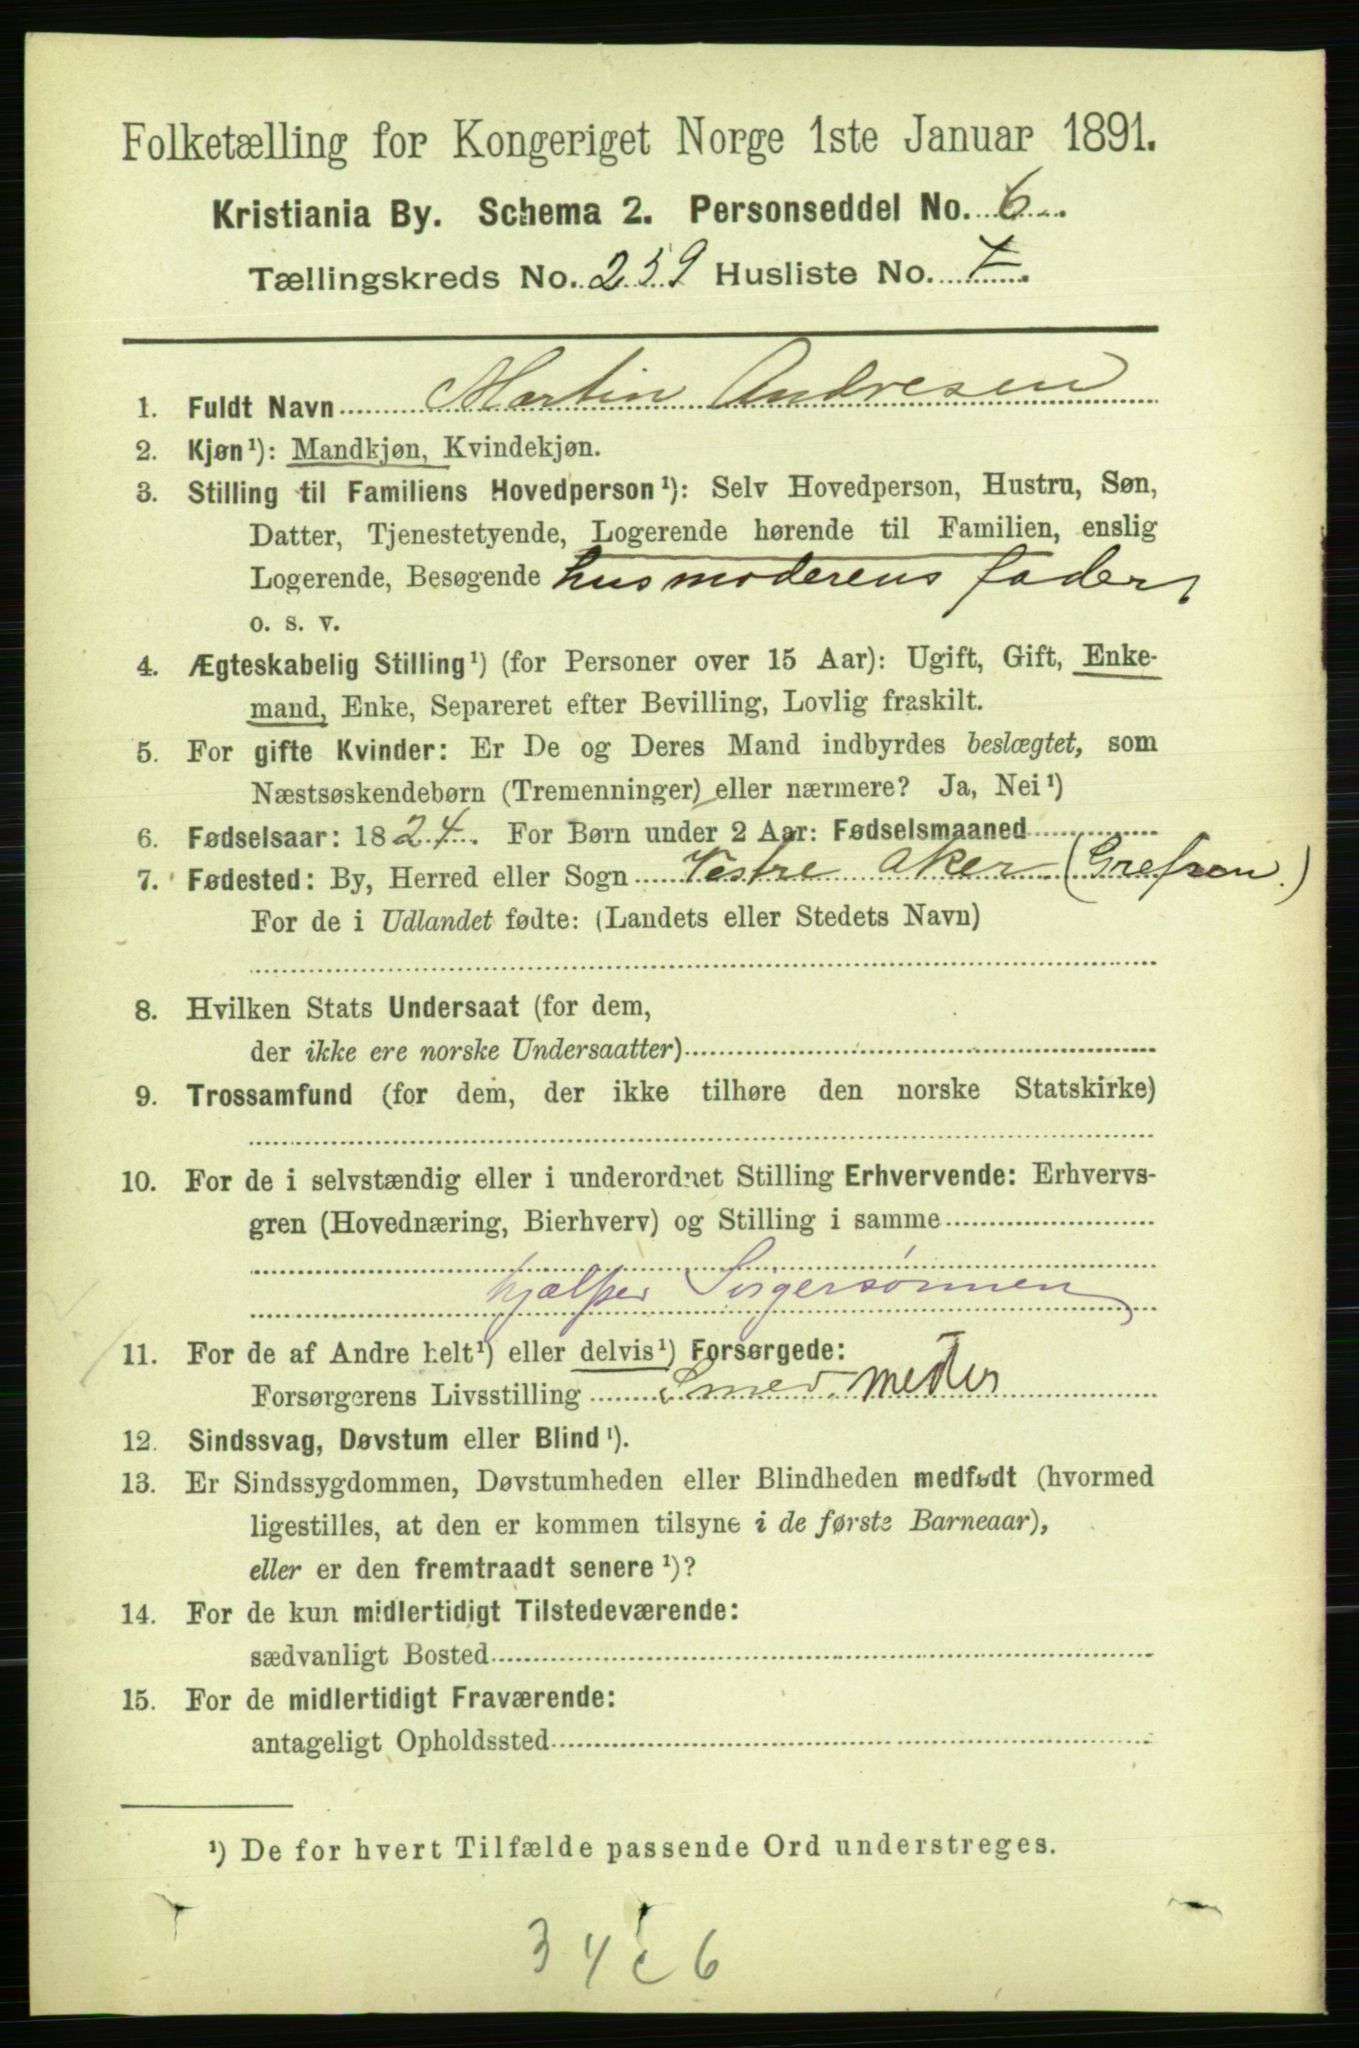 Folketælling for Kongeriget Norge 1ste Januar 1891.
Kristiania By. Schema 2. Personseddel No. 6
Tællingskreds No. 259 Husliste No.
1. Fuldt Navn Martin Andresen
2. Kjøn¹): Mandkjøn, Kvindekjøn.
3. Stilling til Familiens Hovedperson¹): Selv Hovedperson, Hustru, Søn,
Datter, Tjenestetyende, Logerende hørende til Familien, enslig
Logerende, Besøgende husmoderens fader
o. s. v.
4. Ægteskabelig Stilling¹) (for Personer over 15 Aar): Ugift, Gift, Enke-
mand, Enke, Separeret efter Bevilling, Lovlig fraskilt.
5. For gifte Kvinder: Er De og Deres Mand indbyrdes beslægtet, som
Næstsøskendebørn (Tremenninger) eller nærmere? Ja, Nei¹)
6. Fødselsaar: 1824. For Børn under 2 Aar: Fødselsmaaned
7. Fødested: By, Herred eller Sogn Vestre Aker (Grefsen.)
For de i Udlandet fødte: (Landets eller Stedets Navn)
8. Hvilken Stats Undersaat (for dem,
der ikke ere norske Undersaatter)
9. Trossamfund (for dem, der ikke tilhøre den norske Statskirke)
10. For de i selvstændig eller i underordnet Stilling Erhvervende: Erhvervs-
gren (Hovednæring, Bierhverv) og Stilling i samme
hjælper Svigersønnen
11. For de af Andre helt¹) eller delvis¹) Forsørgede:
Forsørgerens Livsstilling Smedmester
12. Sindssvag, Døvstum eller Blind¹).
13. Er Sindssygdommen, Døvstumheden eller Blindheden medfødt (hvormed
ligestilles, at den er kommen tilsyne i de første Barneaar),
eller er den fremtraadt senere¹)?
14. For de kun midlertidigt Tilstedeværende:
sædvanligt Bosted
15. For de midlertidigt Fraværende:
antageligt Opholdssted
¹) De for hvert Tilfælde passende Ord understreges.